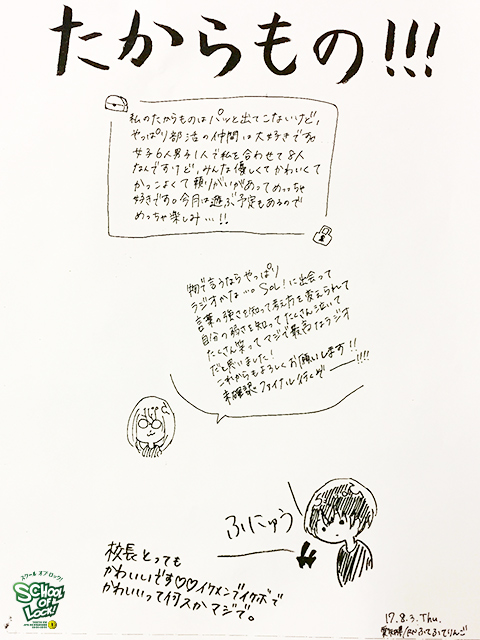 たからもの!!!
私のたからものはパッと出てこないけど、
やっぱり部活の仲間は大好きです
女子6人男子1人で私を合わせて8人
なんですけど、みんな優しくてかわいくて
かっこよくて頼りがいがあってめっちゃ
好きです。今月は遊ぶ予定もあるので
めっちゃ楽しみ…!!
物で言うならやっぱり
ラジオかな…。SOL!に出会って
言葉の強さを知って考え方を変えられて
自分の弱さを知ってたくさん泣いて
たくさん笑ってマジで最高なラジオ
だと思いました!
これからもよろしくお願いします!!
未確認ファイナル行くぞー!!!!
ふにゅう
校長とっても
かわいいです♡♡イケメンでイケボで
かわいいって何スかマジで。
スクール オブ ロック!
SCHOOL
OF
LOCK!
17.8.3.Thu.